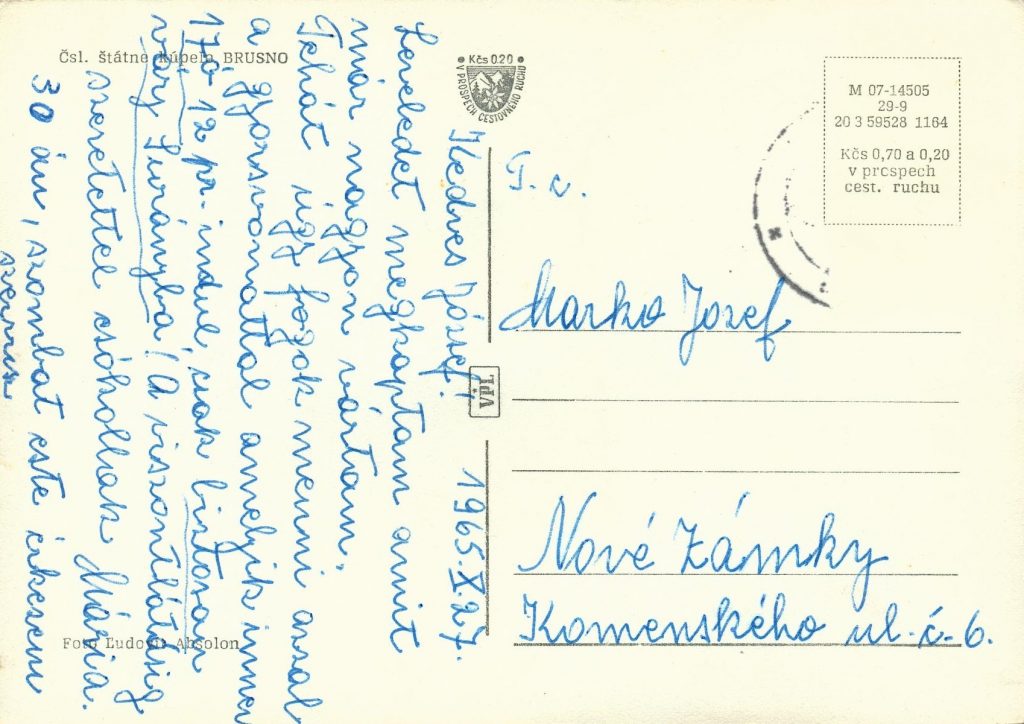 Čsl. štátne kúpele BRUSNO
Kčs 0.20
V PROSPECH CESTOVNÉHO RUCHU
M 07-14505
29-9
20 3 59528 1164
Kčs 0,70 a 0,20
v prospech
cest. ruchu
Kedves József! 1965.X.27.
Leveledet megkaptam amit
már nagyon vártam.
Tehát úgy fogok menni azzal
a gyorsvonattal amelyik innen
17ó 12 pr. indul, csak biztosan
várj Surányba! A viszontlátásig
szeretettel csókollak Mária.
30 án, szombat este érkesem
T. c.
Marko Jozef
Nové Zámky
Komenského ul. č-6.
Foto Ľudovít Absolon